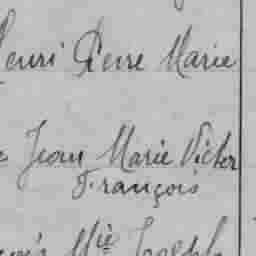 Henri Pierre Marie
Jean Marie Victor
François
Mie Joseph